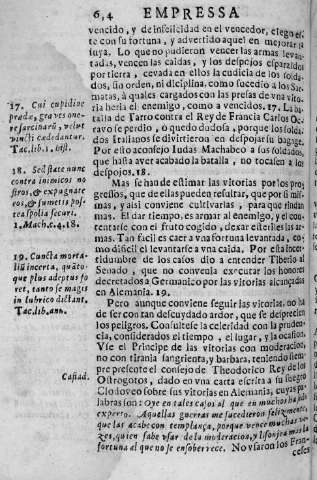 6,4 EMPRESSA
vencido, y de infelicidad en el vencedor, elego este
te con su fortuna, y advertido aquel en mejorar la
suya. Lo que no pudieron vencer las armas levan-
tadas, vencen las caidas, y los despojos esparzidos
por tierra, cevada en ellos la cudicia de los solda-
dos, sin orden, ni diciplina. como sucedio a los Sar-
matas, à quales cargados con las presas de vna vito-
ria heria el enemigo, como a vencidos. 17. La ba-
talla de Tarro contra el Rey de Francia Carlos Oc-
tavo se perdio, o quedo dudosa, porque los solda-
dos Italianos se divirtieron en despojar su bagage.
Por esto aconsejo Iudas Machabeo a sus soldados,
que hasta aver acabado la batalla, no tocasen a los
despojos. 18.
Mas se han de estimar las vitorias por los pro-
gressos, que de ellas pueden resultar, que por si mis-
mas, y asi conviene cultivarlas, para que rindan
mas. El dar tiempo, es armar al enemigo, y el con-
tentarse con el fruto cogido, dexar esteriles las armas.
Tan facil es caer a vna fortuna levantada, co-
mo dificil el levantarse a vna caida. Por esta incer-
tidumbre de los casos dio a entender Tiberio al
Senado, que no convenia executar los honores
decretados a Germanico por las vitorias alcançadas
en Alemania. 19.
Pero aunque conviene seguir las vitorias, no ha
de ser con tan descuydado ardor, que se desprecien
los peligros. Consultese la celeridad con la pruden-
cia, considerados el tiempo, el lugar, y la ocasion.
Vse el Principe de las vitorias con moderacion,
no con tirania sangrienta, y barbara, teniendo siem-
pre presente el consejo de Theodorico Rey de los
Ostrogotos, dado en vna carta escrita a su suegro
Clodoveo sobre sus vitorias en Alemania, cuyas pa-
labras son: Oye en tales casos al que en mucho ha sido
experto. Aquellas guerras me sucedieron felizmente,
que las acabè con templança, porque vence muchas ve-
zes, quien sabe vsar de la moderacion, y lisonjea mas la
fortuna al que no se ensobervece. No vsaron los Fran-
ceses
17. Cui cupidine
præda, graves one-
re sarcinarũ, velut
vincti cædedantur.
Tac. lib. 1. hist.
18. Sed state nunc
contra inimicos no
stros, & expugnate
eos, & sumetis pos
tea spolia securi.
1. Mach. c. 4. 18.
19. Cuncta morta-
liũ incerta, quãto
que plus adeptus fo
ret, tanto se magis
in lubrico dictant.
Tac. lib. ann.
Casiad.